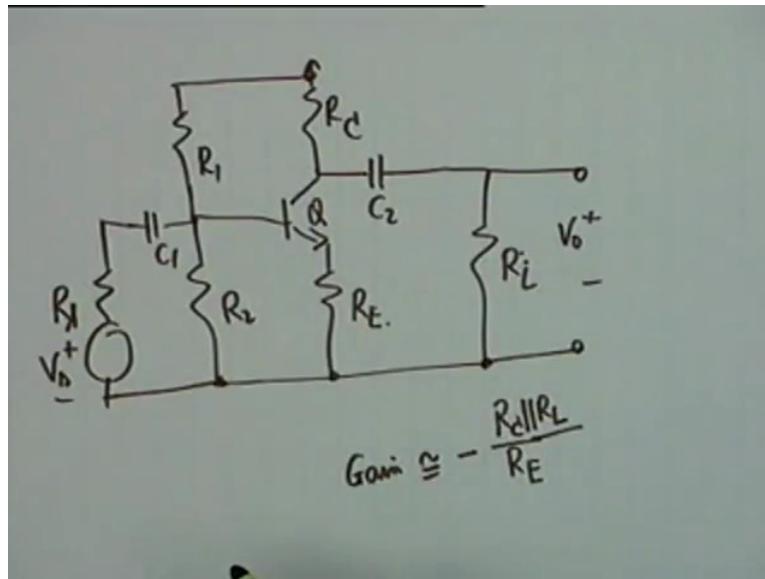 RC
R1
Q
C2
C1
V0
+
-
RL
RS
R2
RE.
VS
+
-
Gain ≅ - RC||RL
RE